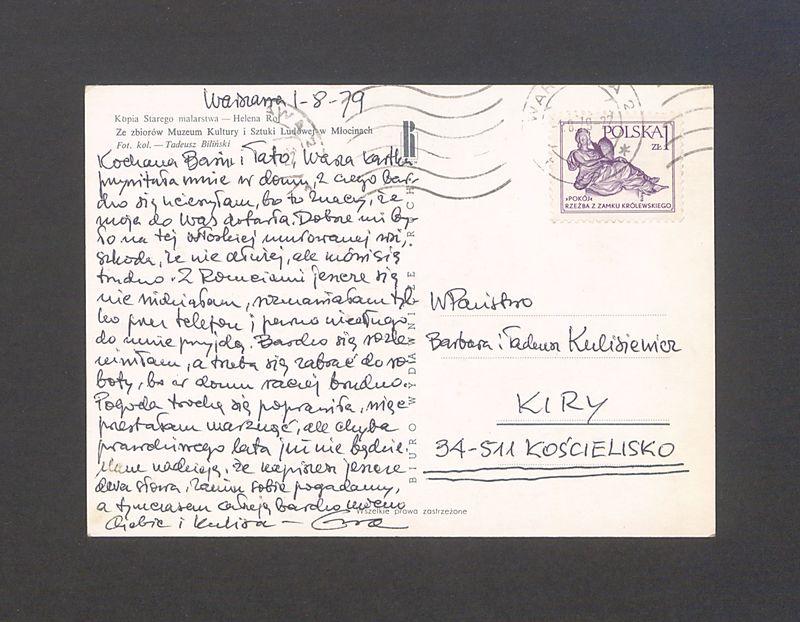 Warszawa 1-8-79
Kopia Starego malarstwa — Helena Rój
Ze zbiorów Muzeum Kultury i Sztuki Ludowej w Młocinach
Fot. kol. — Tadeusz Biliński
Kochana Basiu i Tato, Wasza kartka
przywitała mnie w domu, z czego bar-
dzo się ucieszyłam, bo to znaczy, że
moja do Was dotarła. Dobrze mi by-
ło na tej włoskiej murowanej wsi,
szkoda, że nie dłużej, ale mówi się
trudno. Z Romciami jeszcze się
nie widziałam, rozmawiałam tyl-
ko przez telefon i pewno niedługo
do mnie przyjdą. Bardzo się rozle-
niwiłam, a trzeba się zabrać do ro-
boty, bo w domu raczej brudno.
Pogoda trochę się poprawiła, więc
przestałam marznąć, ale chyba
prawdziwego lata już nie będzie.
Mam nadzieję, że napiszesz jeszcze
dwa słowa, zanim sobie pogadamy,
a tymczasem całuję bardzo mocno
Ciebie i Kulisa —
BIURO WYDAWNICZE RUCH
Wszelkie prawa zastrzeżone
WARSZAWA 2
POLSKA 1
ZŁ
»POKÓJ«
RZEŹBA Z ZAMKU KRÓLEWSKIEGO
WPaństwo
Barbara i Tadeusz Kulisiewicz
KIRY
34-511 KOŚCIELISKO